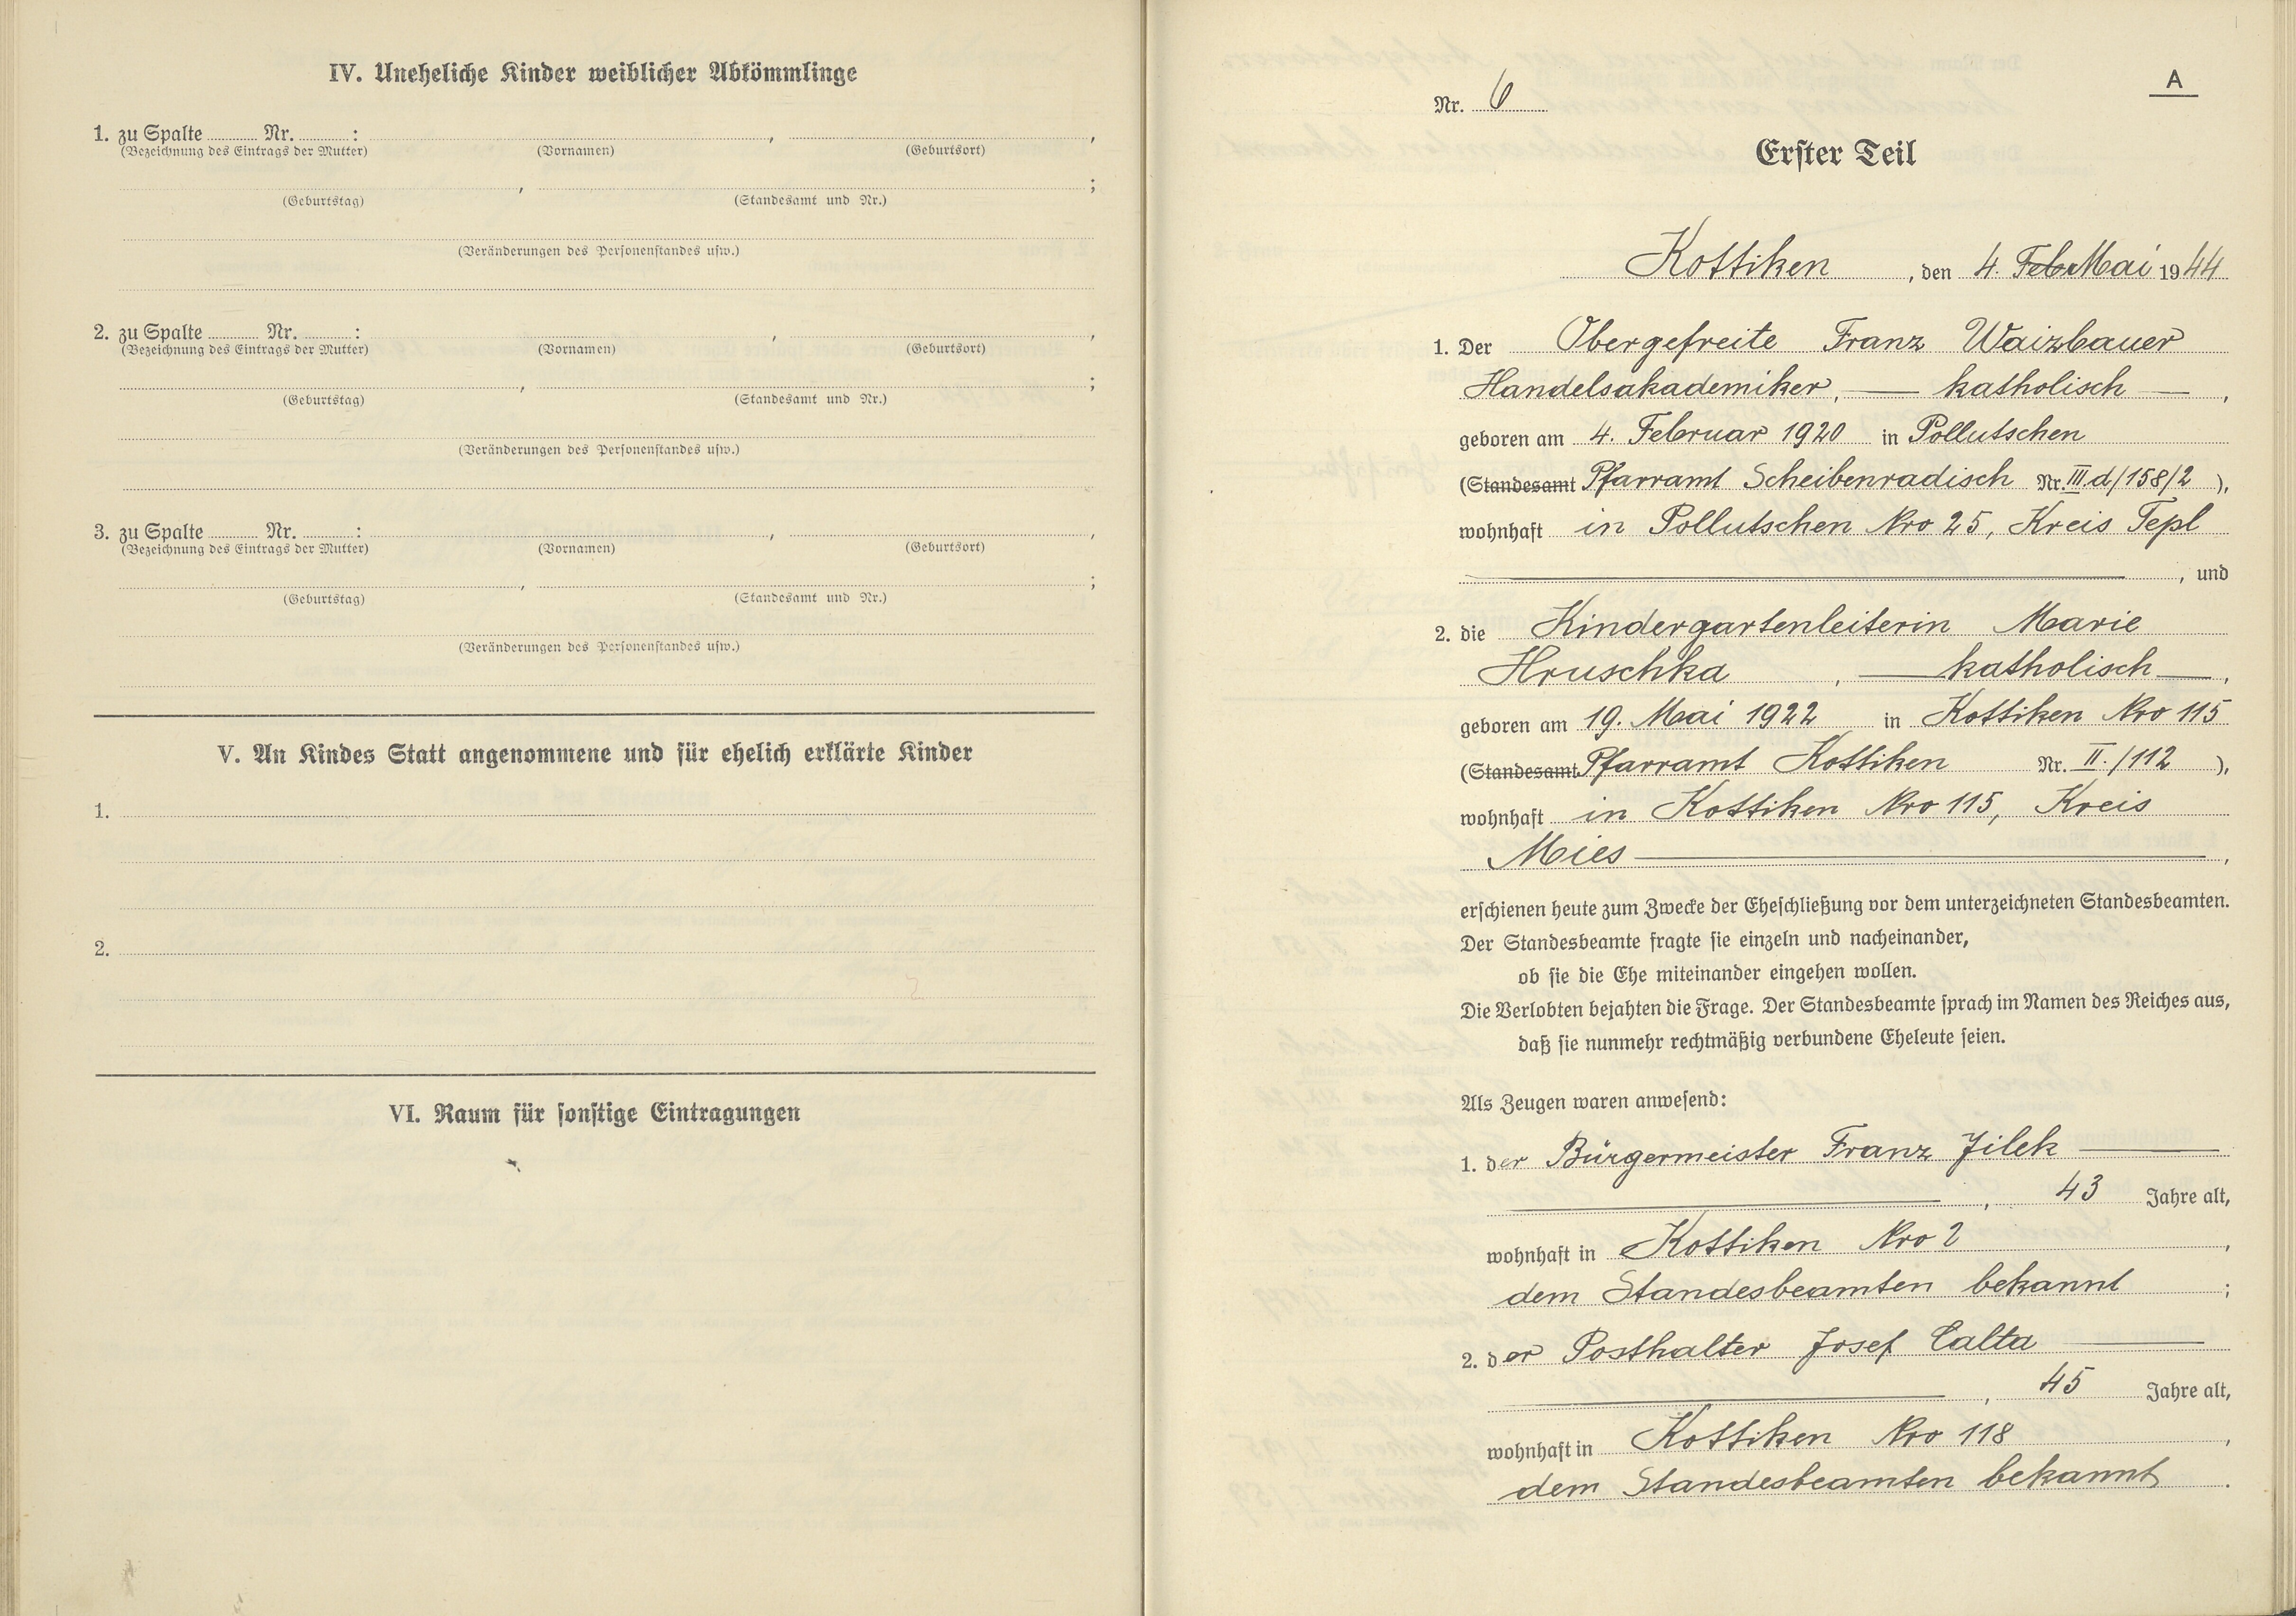 IV. Uneheliche Kinder weiblicher Abkömmlinge
1. zu Spalte ........ Nr. ........ : ........ , ........ ,
(Bezeichnung des Eintrags der Mutter) (Vornamen) (Geburtsort)
........ , ........ ;
(Geburtstag) (Standesamt und Nr.)
(Veränderungen des Personenstandes usw.)
2. zu Spalte ........ Nr. ........ : ........ , ........ ,
(Bezeichnung des Eintrags der Mutter) (Vornamen) (Geburtsort)
........ , ........ ;
(Geburtstag) (Standesamt und Nr.)
(Veränderungen des Personenstandes usw.)
3. zu Spalte ........ Nr. ........ : ........ , ........ ,
(Bezeichnung des Eintrags der Mutter) (Vornamen) (Geburtsort)
........ , ........ ;
(Geburtstag) (Standesamt und Nr.)
(Veränderungen des Personenstandes usw.)
V. An Kindes Statt angenommene und für ehelich erklärte Kinder
1.
2.
VI. Raum für sonstige Eintragungen
A
Nr. 6
Erster Teil
Kottiken, den 4. Febr Mai 1944
1. Der Obergefreite Franz Waizbauer
Handelsakademiker, — katholisch —,
geboren am 4. Februar 1920 in Pollutschen
(Standesamt Pfarramt Scheibenradisch Nr. III d/158/2),
wohnhaft in Pollutschen Nro 25, Kreis Tepl
—, und
2. die Kindergartenleiterin Marie
Hruschka, — katholisch —,
geboren am 19. Mai 1922 in Kottiken Nro 115
(Standesamt Pfarramt Kottiken Nr. II./112),
wohnhaft in Kottiken Nro 115, Kreis
Mies —,
erschienen heute zum Zwecke der Eheschließung vor dem unterzeichneten Standesbeamten.
Der Standesbeamte fragte sie einzeln und nacheinander,
ob sie die Ehe miteinander eingehen wollen.
Die Verlobten bejahten die Frage. Der Standesbeamte sprach im Namen des Reiches aus,
daß sie nunmehr rechtmäßig verbundene Eheleute seien.
Als Zeugen waren anwesend:
1. der Bürgermeister Franz Jilek —
—, 43 Jahre alt,
wohnhaft in Kottiken Nro 2,
dem Standesbeamten bekannt;
2. der Posthalter Josef Calta —
—, 45 Jahre alt,
wohnhaft in Kottiken Nro 118,
dem Standesbeamten bekannt.